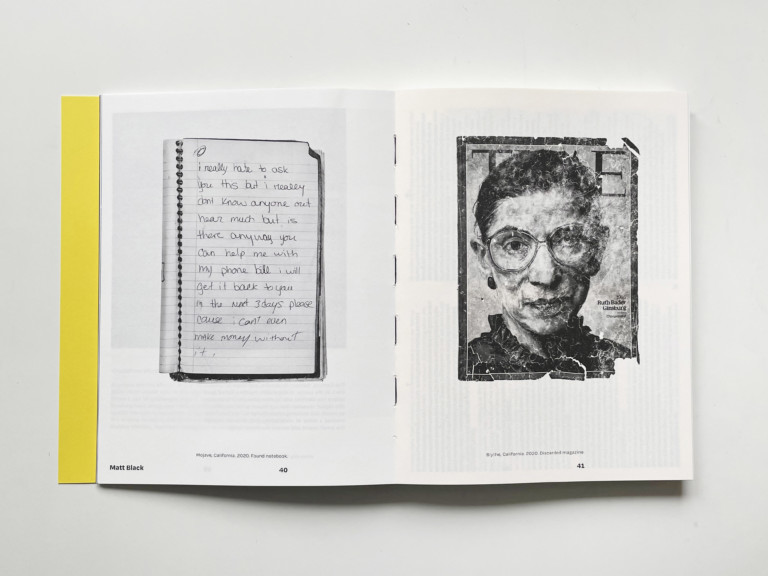 i really hate to ask
you this but i really
dont know anyone out
hear much but is
there anyway you
can help me with
my phone bill i will
get it back to you
in the next 3days please
cause i can't even
make money without
it.
Mojave, California. 2020. Found notebook.
Matt Black
40
T E
Ruth Bader
Ginsburg
Blythe, California. 2020. Discarded magazine.
41